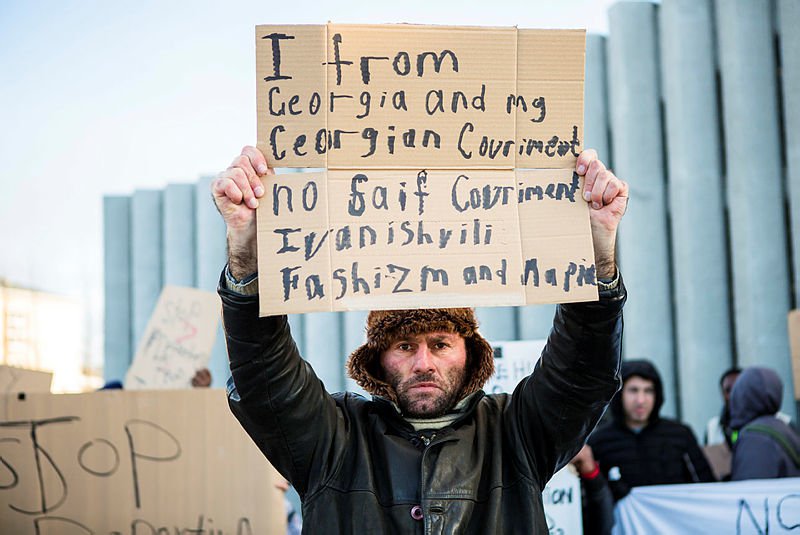 I from
Georgia and my
Georgian Couriment
no Saif Couriment
Ivanishvili
Fashizm and
STOP
NO